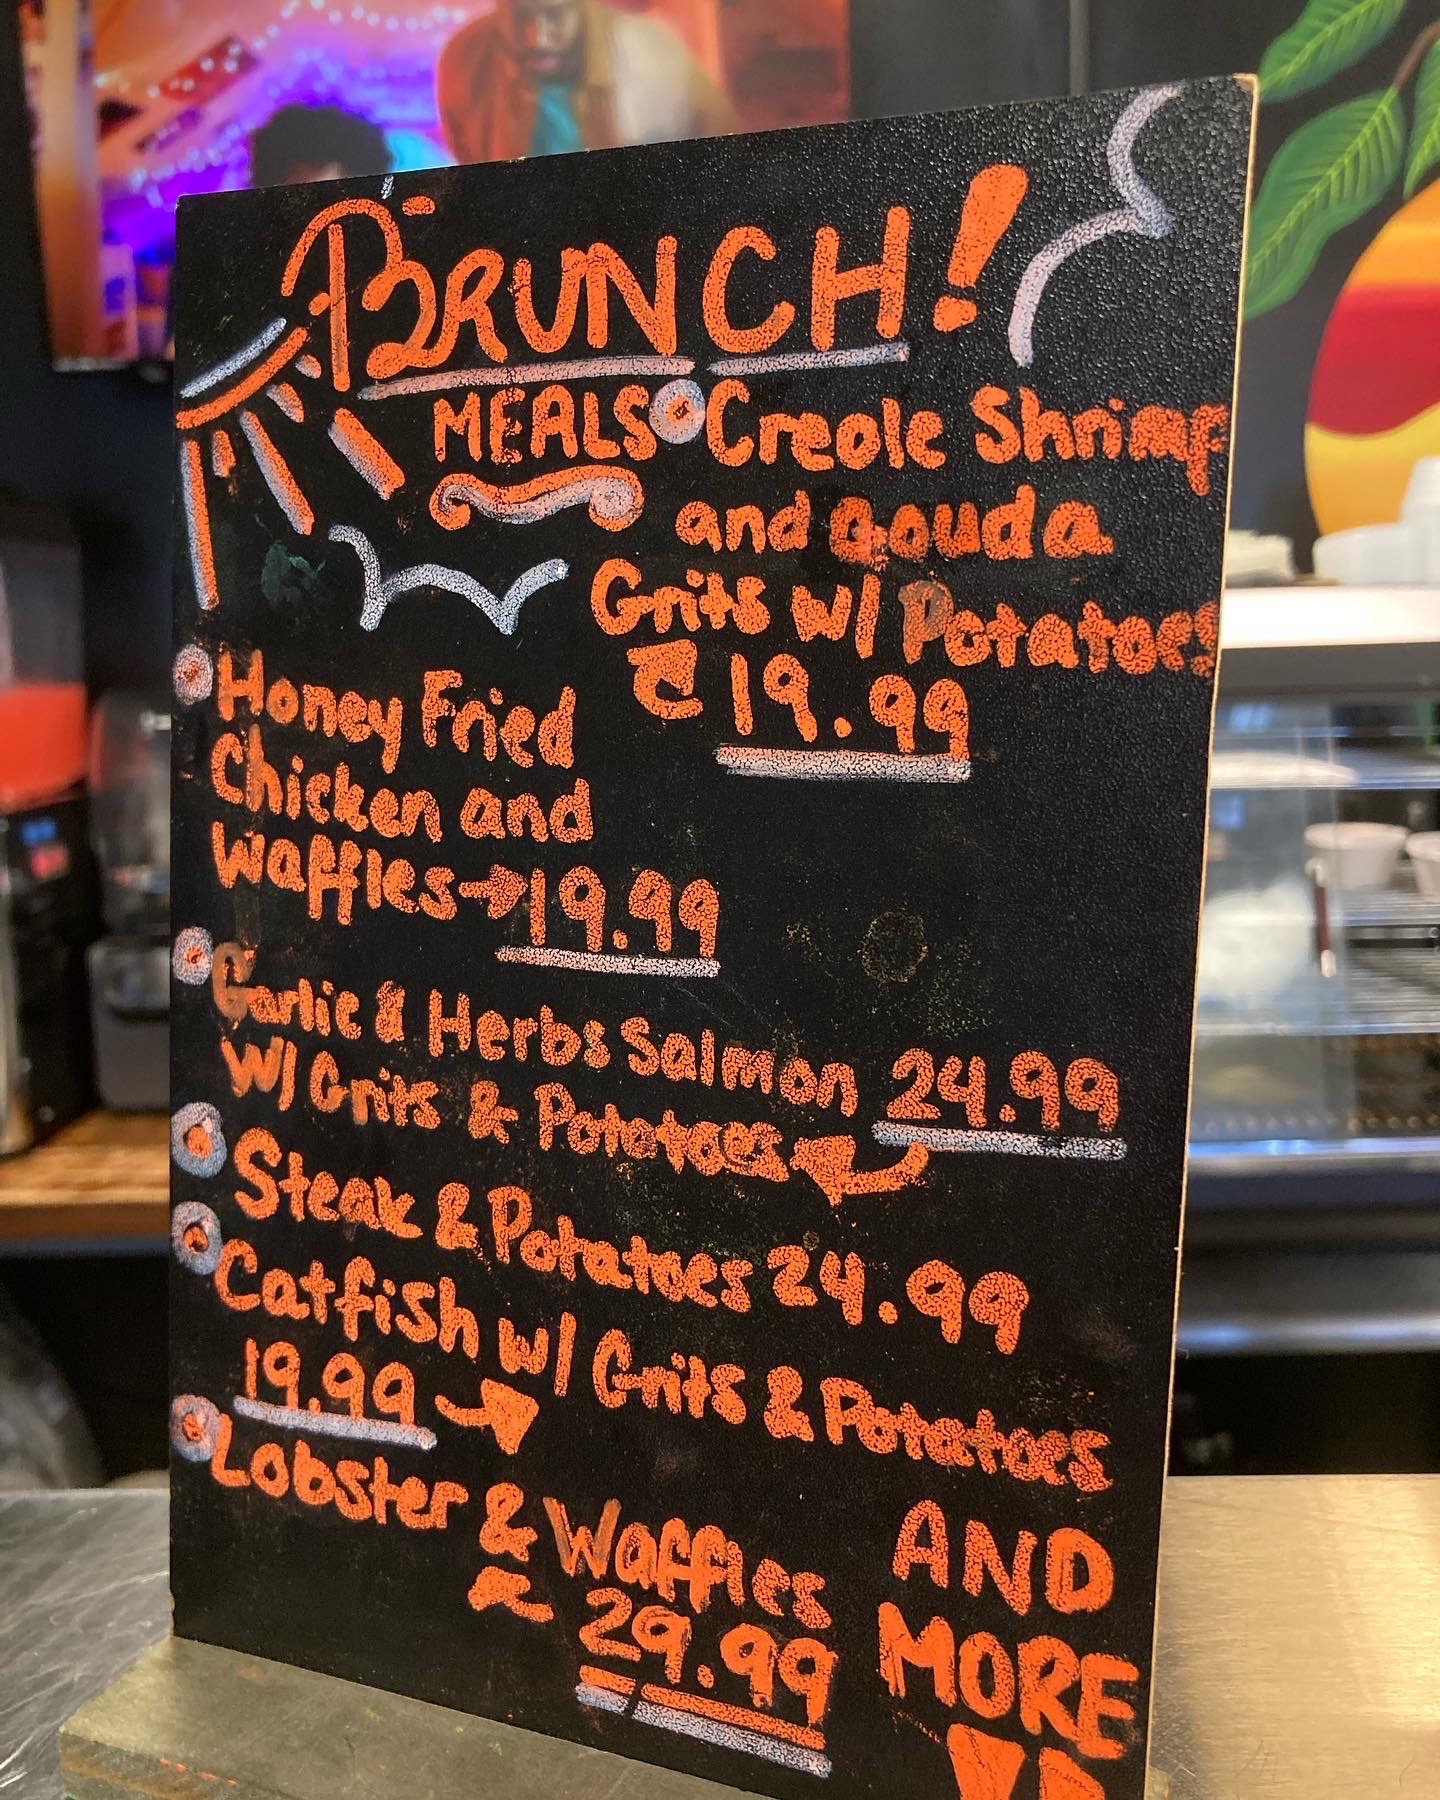 BRUNCH!
MEALS
Creole Shrimp
and Gouda
Grits w/ Potatoes
19.99
Honey Fried
Chicken and
Waffles→19.99
Garlic & Herbs Salmon 24.99
w/ Grits & Potatoes
Steak & Potatoes 24.99
Catfish w/ Grits & Potatoes
19.99
Lobster & Waffles
29.99
AND
MORE